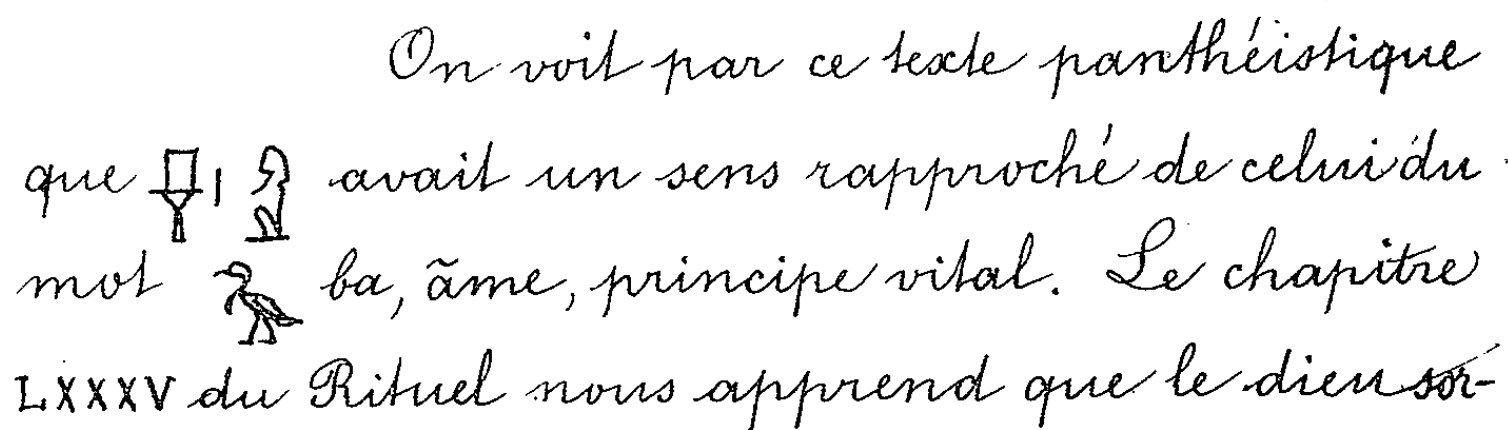 On voit par ce texte panthéistique
que avait un sens rapproché de celui du
mot 𓅡 ba, âme, principe vital. Le chapitre
LXXXV du Rituel nous apprend que le dieu sor-